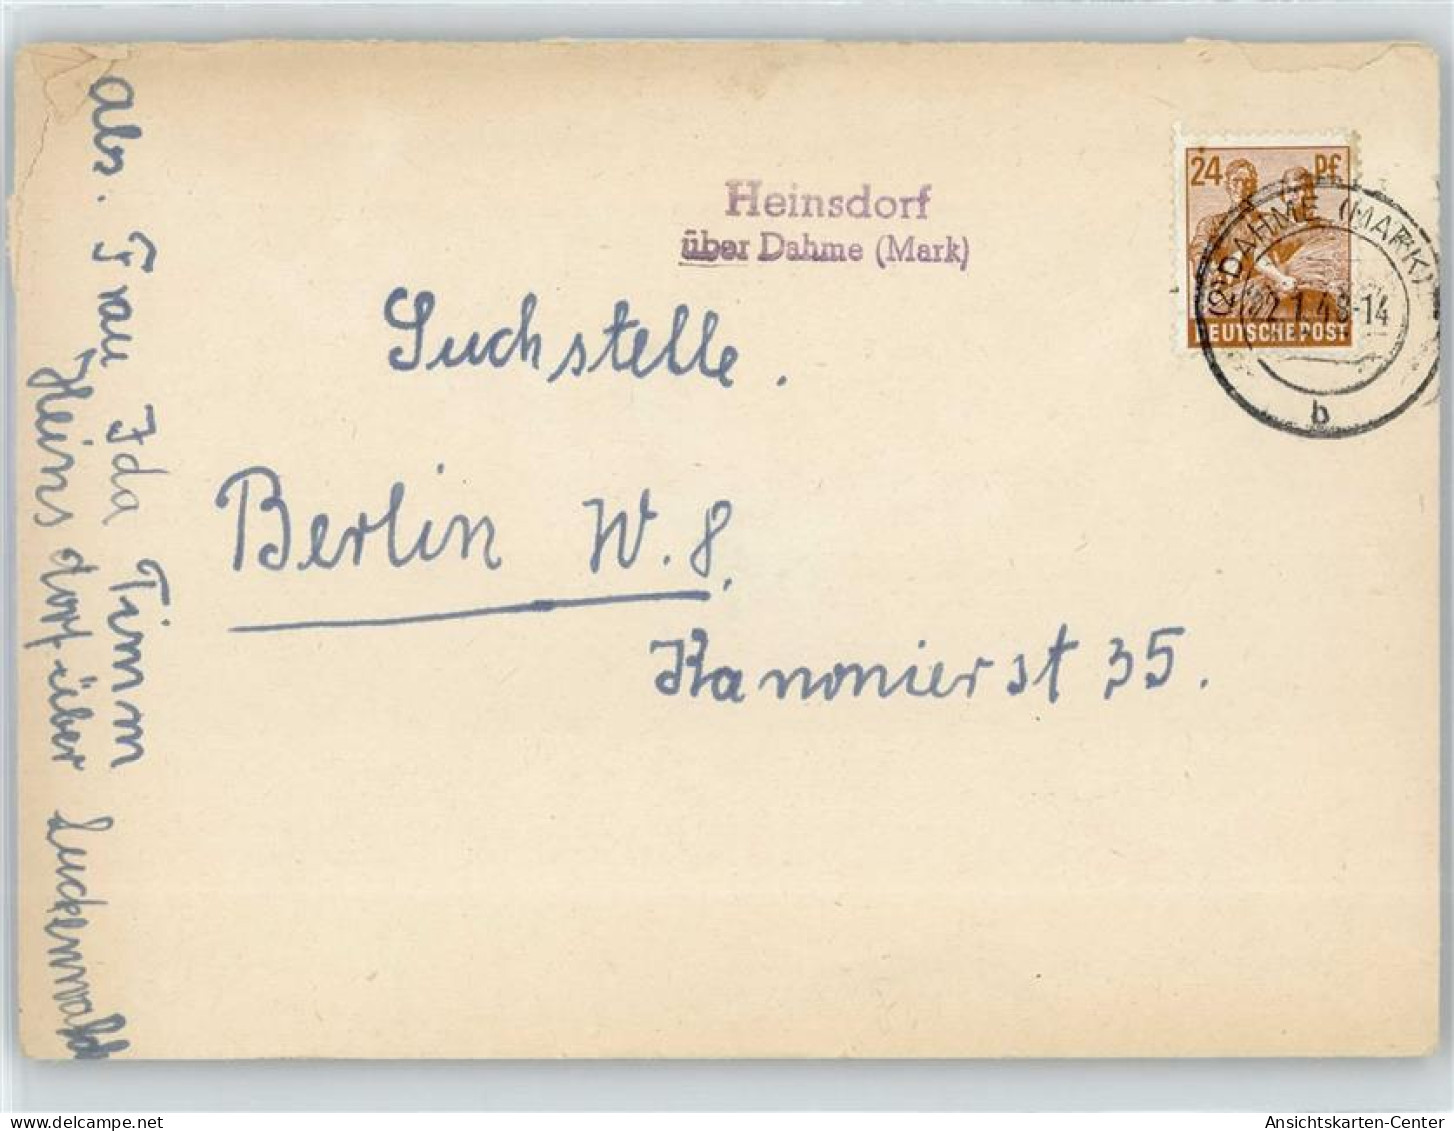 Abs. Frau Ida Timm
Heinsdorf über Luckenwalde
Heinsdorf
über Dahme (Mark)
24 Pf
DEUTSCHE POST
(2) DAHME (MARK)
22.1.48-14
b
Suchstelle.
Berlin W. 8.
Kanonierst 35.
Ansichtskarten-Center